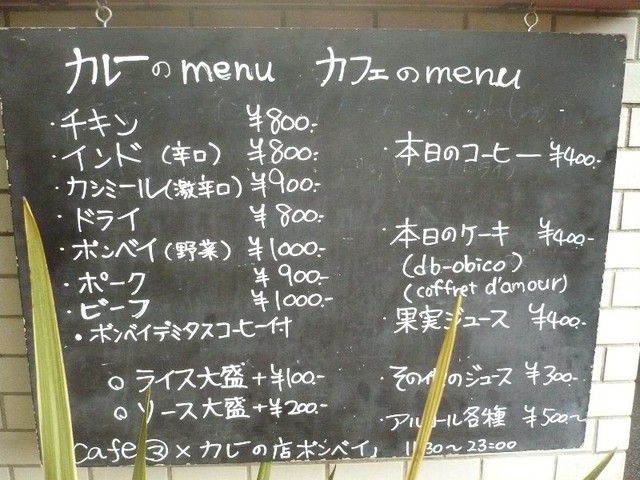 カレーのmenu
・チキン ¥800.-
・インド（辛口） ¥800.-
・カシミール（激辛口） ¥900.-
・ドライ ¥800.-
・ボンベイ（野菜） ¥1000.-
・ポーク ¥900.-
・ビーフ ¥1000.-
•ボンベイデミタスコーヒー付
○ライス大盛+¥100.-
○ソース大盛+¥200.-
カフェのmenu
・本日のコーヒー ¥400.-
・本日のケーキ ¥400.-
(db-obico)
(coffret d'amour)
・果実ジュース ¥400.-
・その他のジュース ¥300.-
アルコール各種 ¥500〜
cafe③×カレーの店ボンベイ」 11:30〜23:00